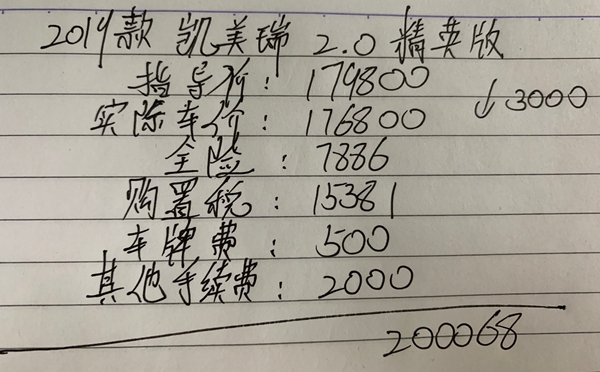 2019款 凯美瑞 2.0 精英版
指导价: 179800
↓3000
实际车价: 176800
全险: 7886
购置税: 15381
车牌费: 500
其他手续费: 2000
200068